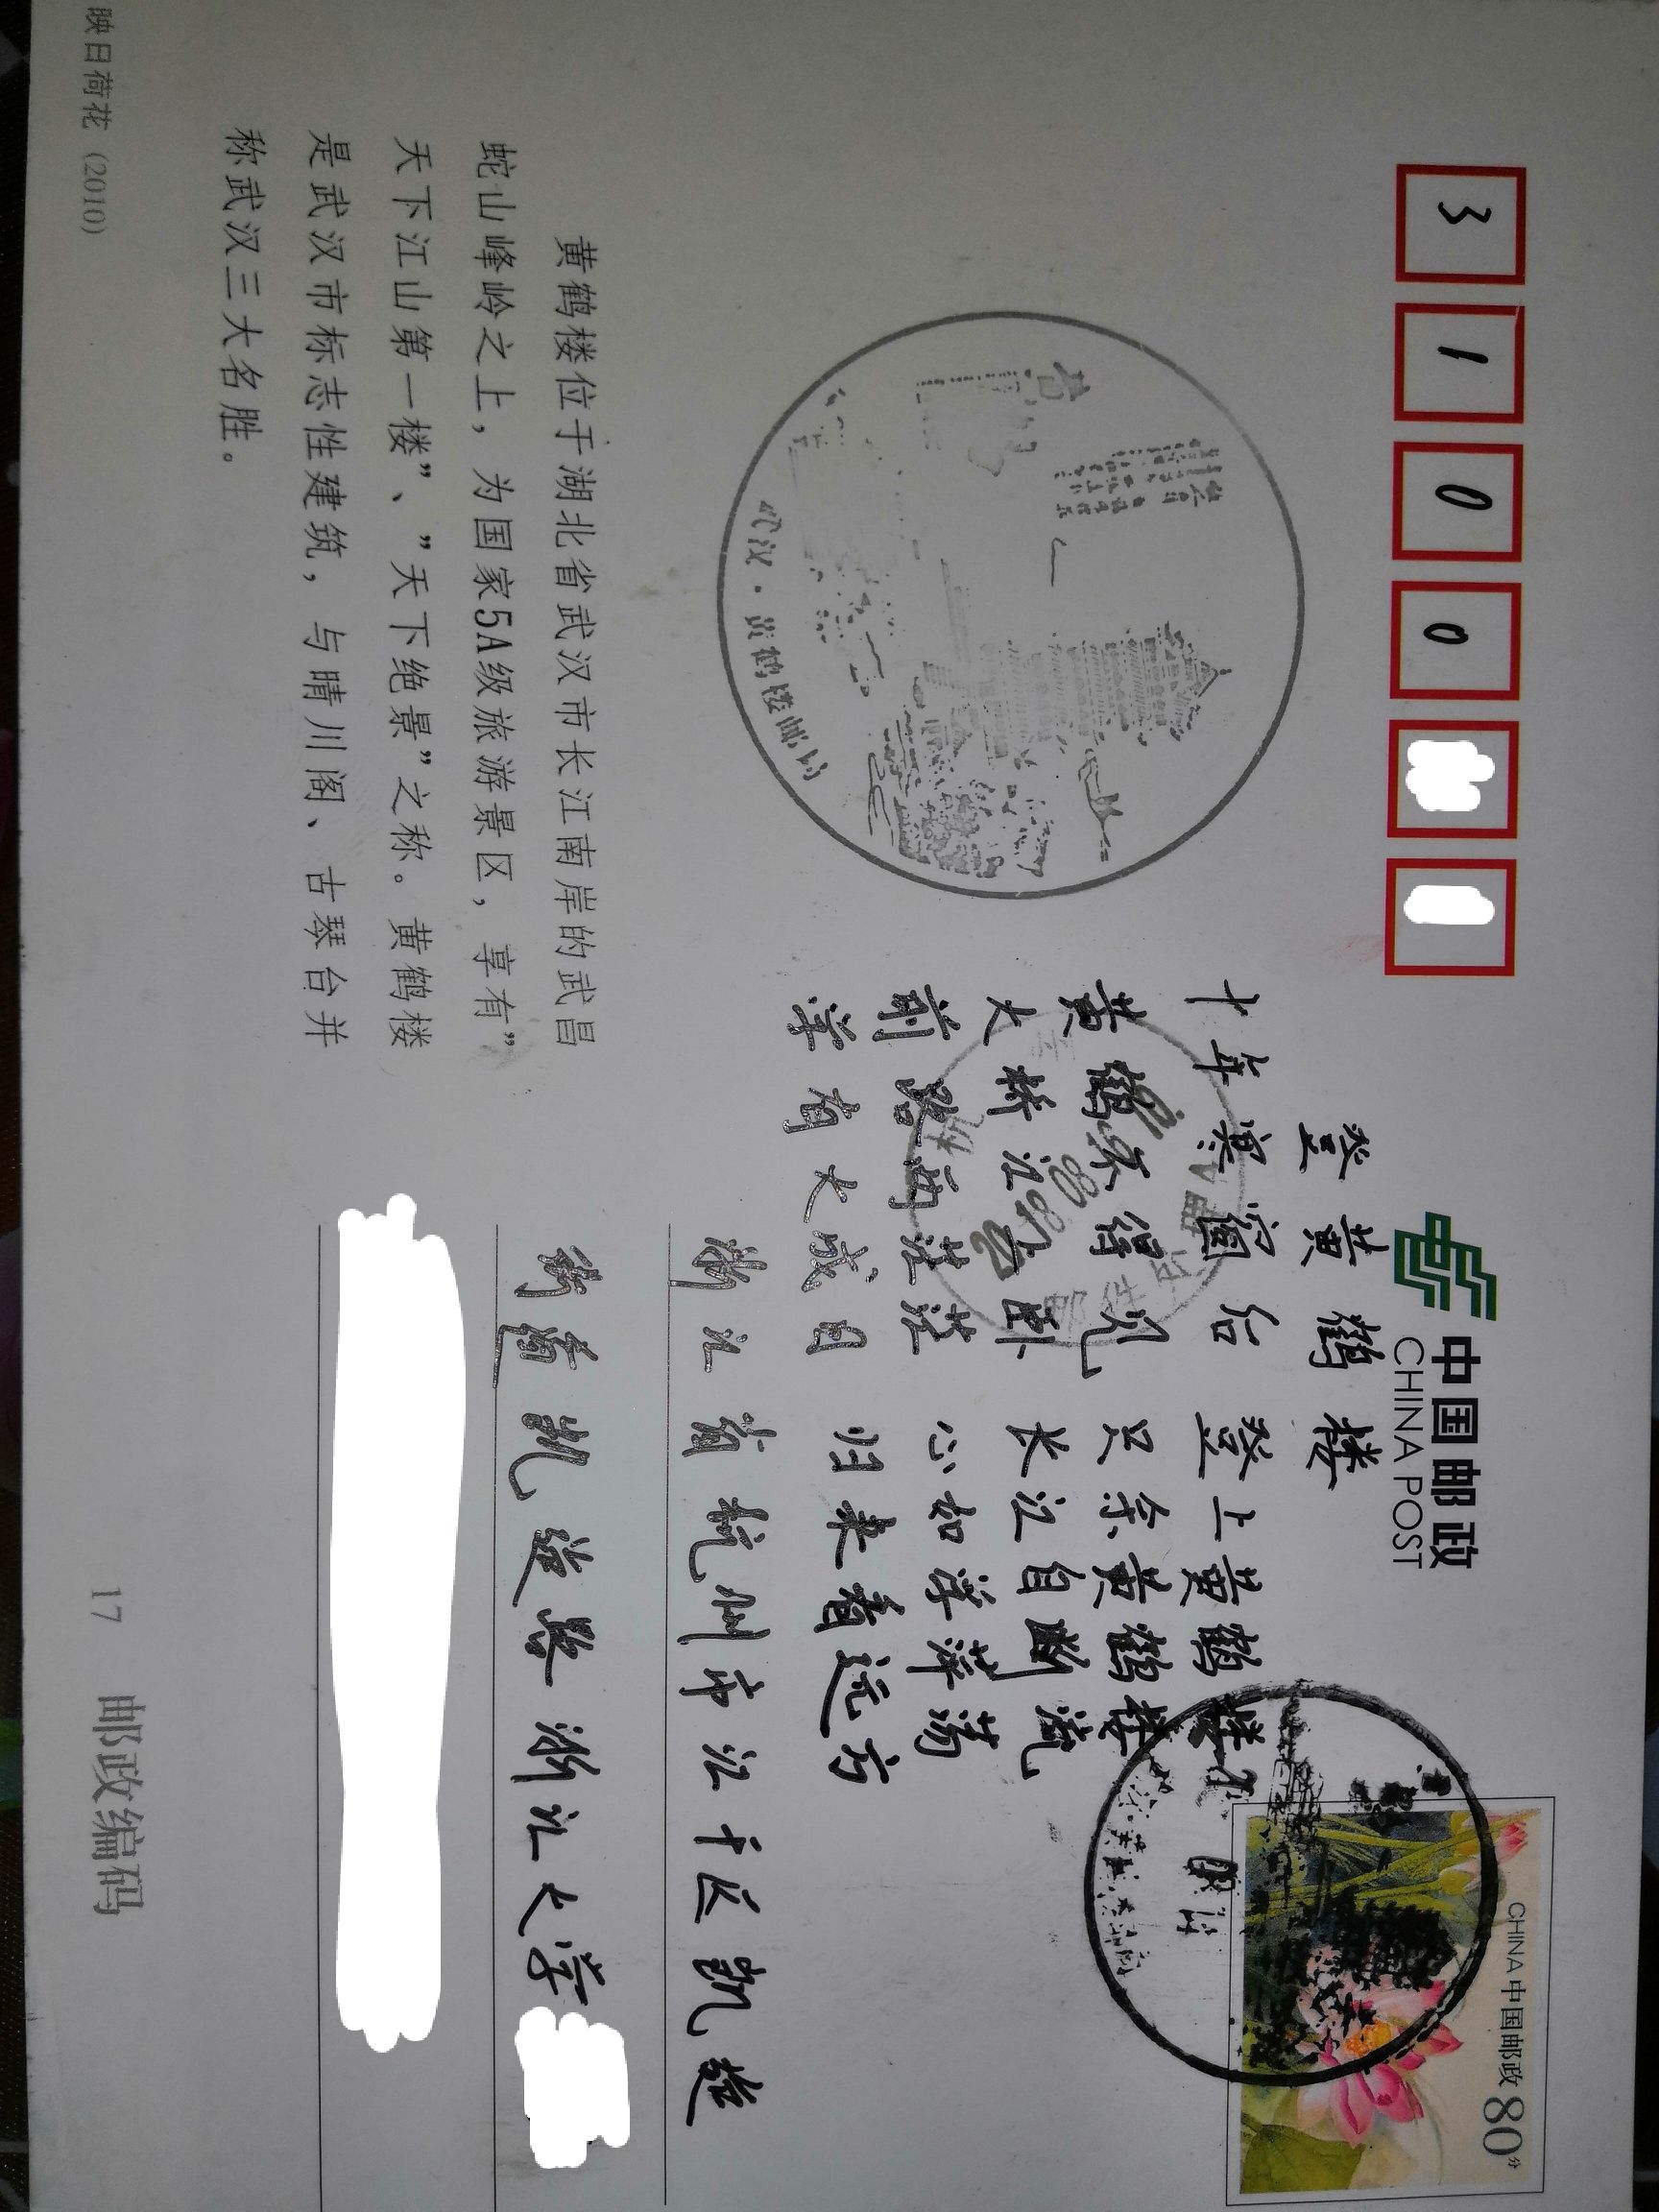 3 1 0 0
中国邮政
CHINA POST
CHINA 中国邮政 80分
登黄鹤楼
十年寒窗后 登上黄鹤楼
黄鹤不得见 只余黄鹤楼
大桥江上卧 长江自断流
前路两茫茫 心如浮萍荡
学有大成日 归来看远方
浙江省杭州市江干区凯旋
街道凯旋路浙江大学
武汉·黄鹤楼邮局
黄鹤楼位于湖北省武汉市长江南岸的武昌
蛇山峰岭之上，为国家5A级旅游景区，享有”
天下江山第一楼”、”天下绝景”之称。黄鹤楼
是武汉市标志性建筑，与晴川阁、古琴台并
称武汉三大名胜。
映日荷花 (2010)
17 邮政编码